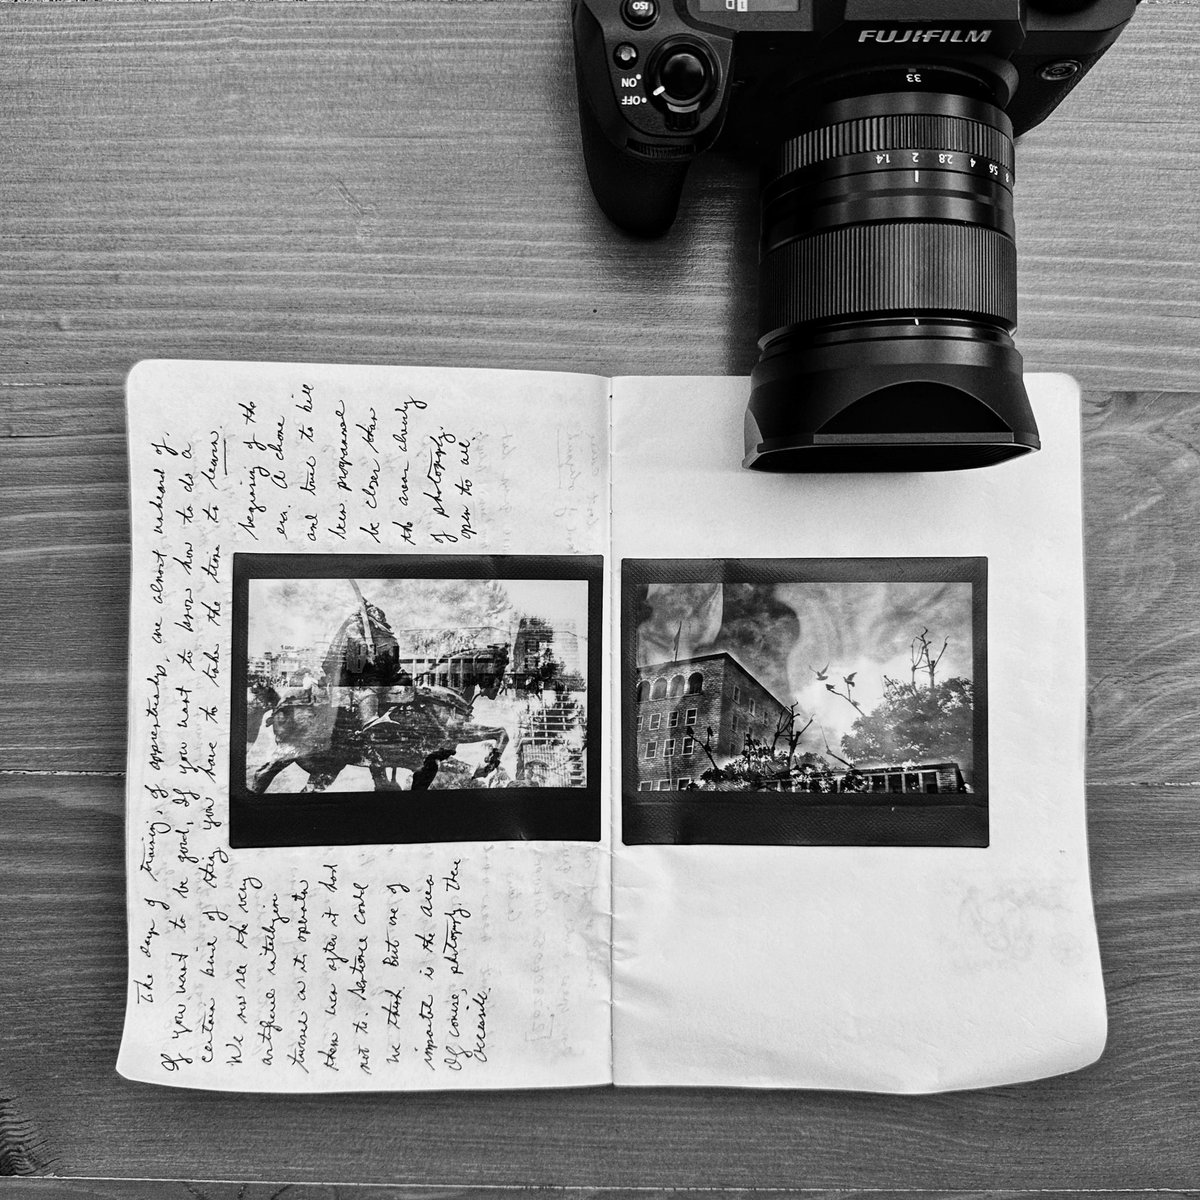 FUJIFILM
ISO
ON
OFF
33
1.4 2 2.8 4 5.6 8
The days of training, of apprenticeship, are almost unheard of.
If you want to be good, If you want to know how to do a
certain kind of thing you have to take the time to learn.
We now see the very beginning of the
artificial era. A drone
turned on its operator and tried to kill
even after it had been programmed
not to. Sentience could be closer than
we think. But one of the areas already
is the area of photography.
Of course, photography, open to all.